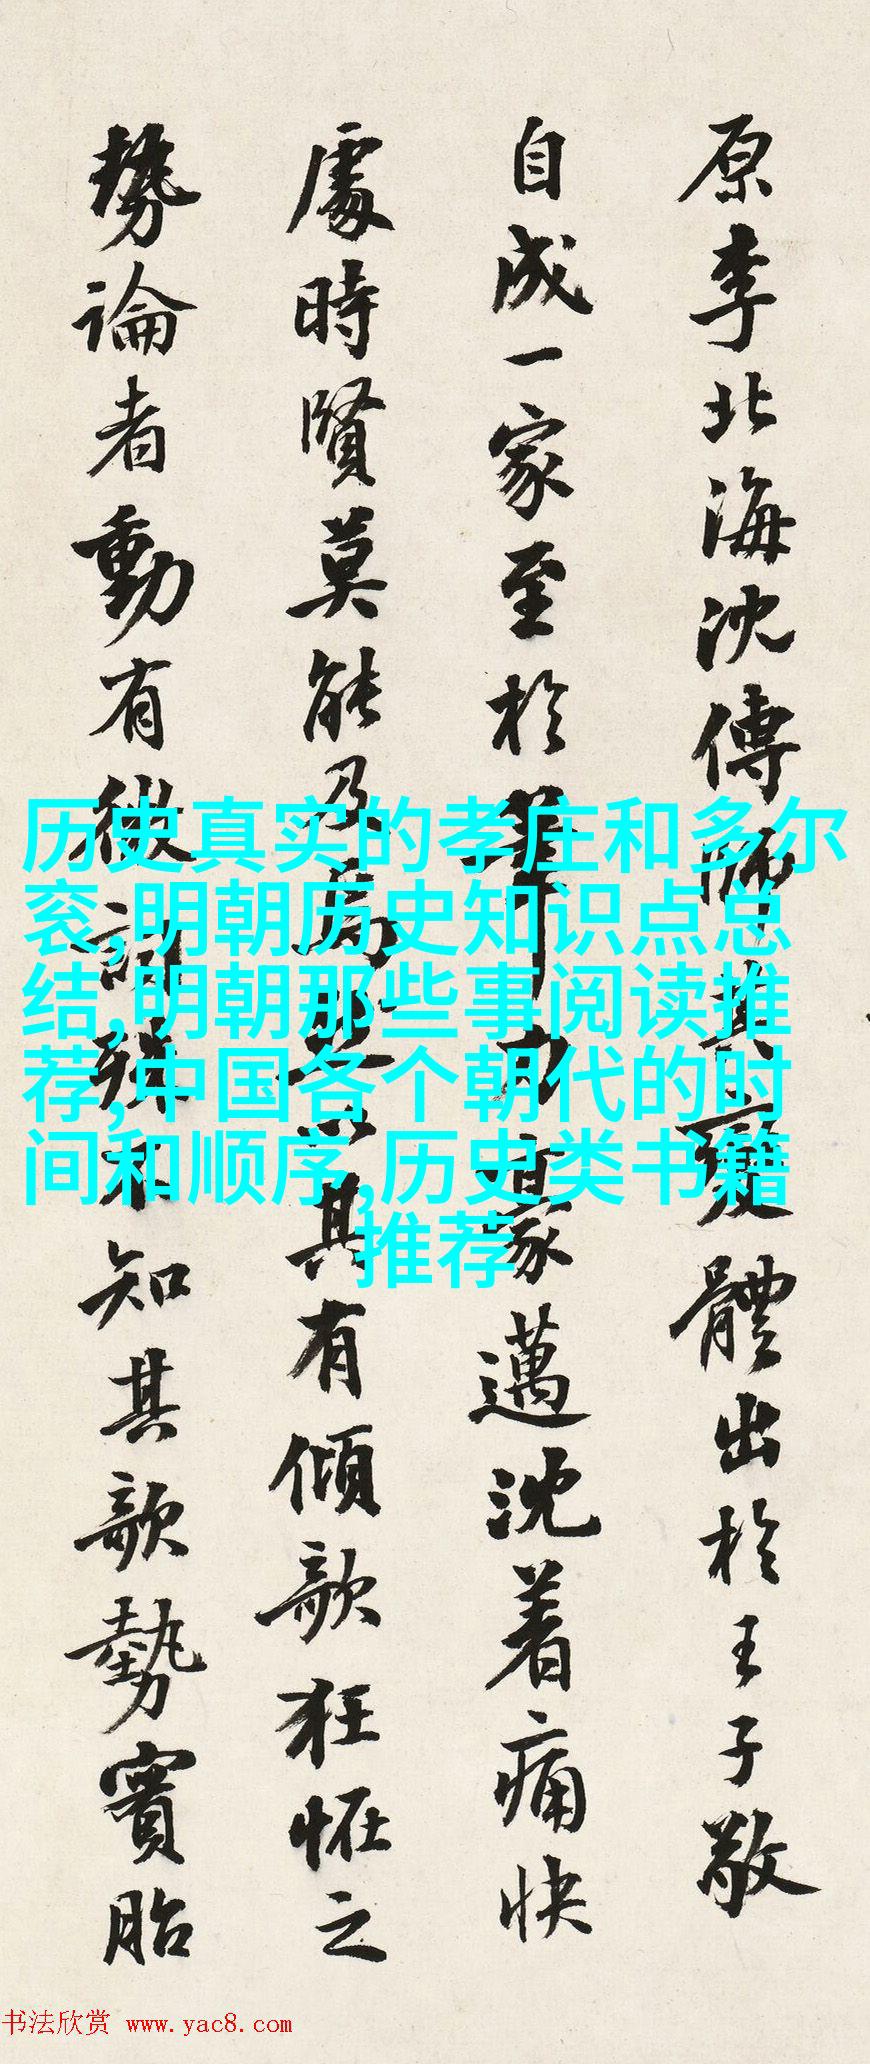 原李北海沈傳師其變體出於王子敬
自成一家至於筆力豪邁沈着痛快
處時賢莫能及為以其有傾欹狂怪之
勢論者動有微詞殊不知其欹勢實胎
历史真实的孝庄和多尔
衮,明朝历史知识点总
结,明朝那些事阅读推
荐,中国各个朝代的时
间和顺序,历史类书籍
推荐
书法欣赏 www.yac8.com